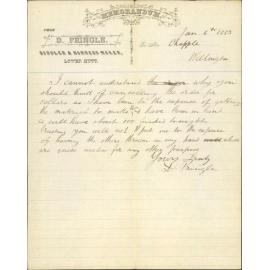 MEMORANDUM.
FROM
D. PRINGLE,
SADDLER & HARNESS MAKER,
LOWER HUTT.
Jan 6th 1883
To Mr Chapple
Wellington
I cannot understand why you
should think of cancelling the order for
collars as I have been to the expense of getting
the material to make them & have them in hand
& will have about 100 finished to-night
Trusting you will not put me to the expense
of having the others thrown on my hand which
are quite useless for any other purpose
Yours Truly
D. Pringle